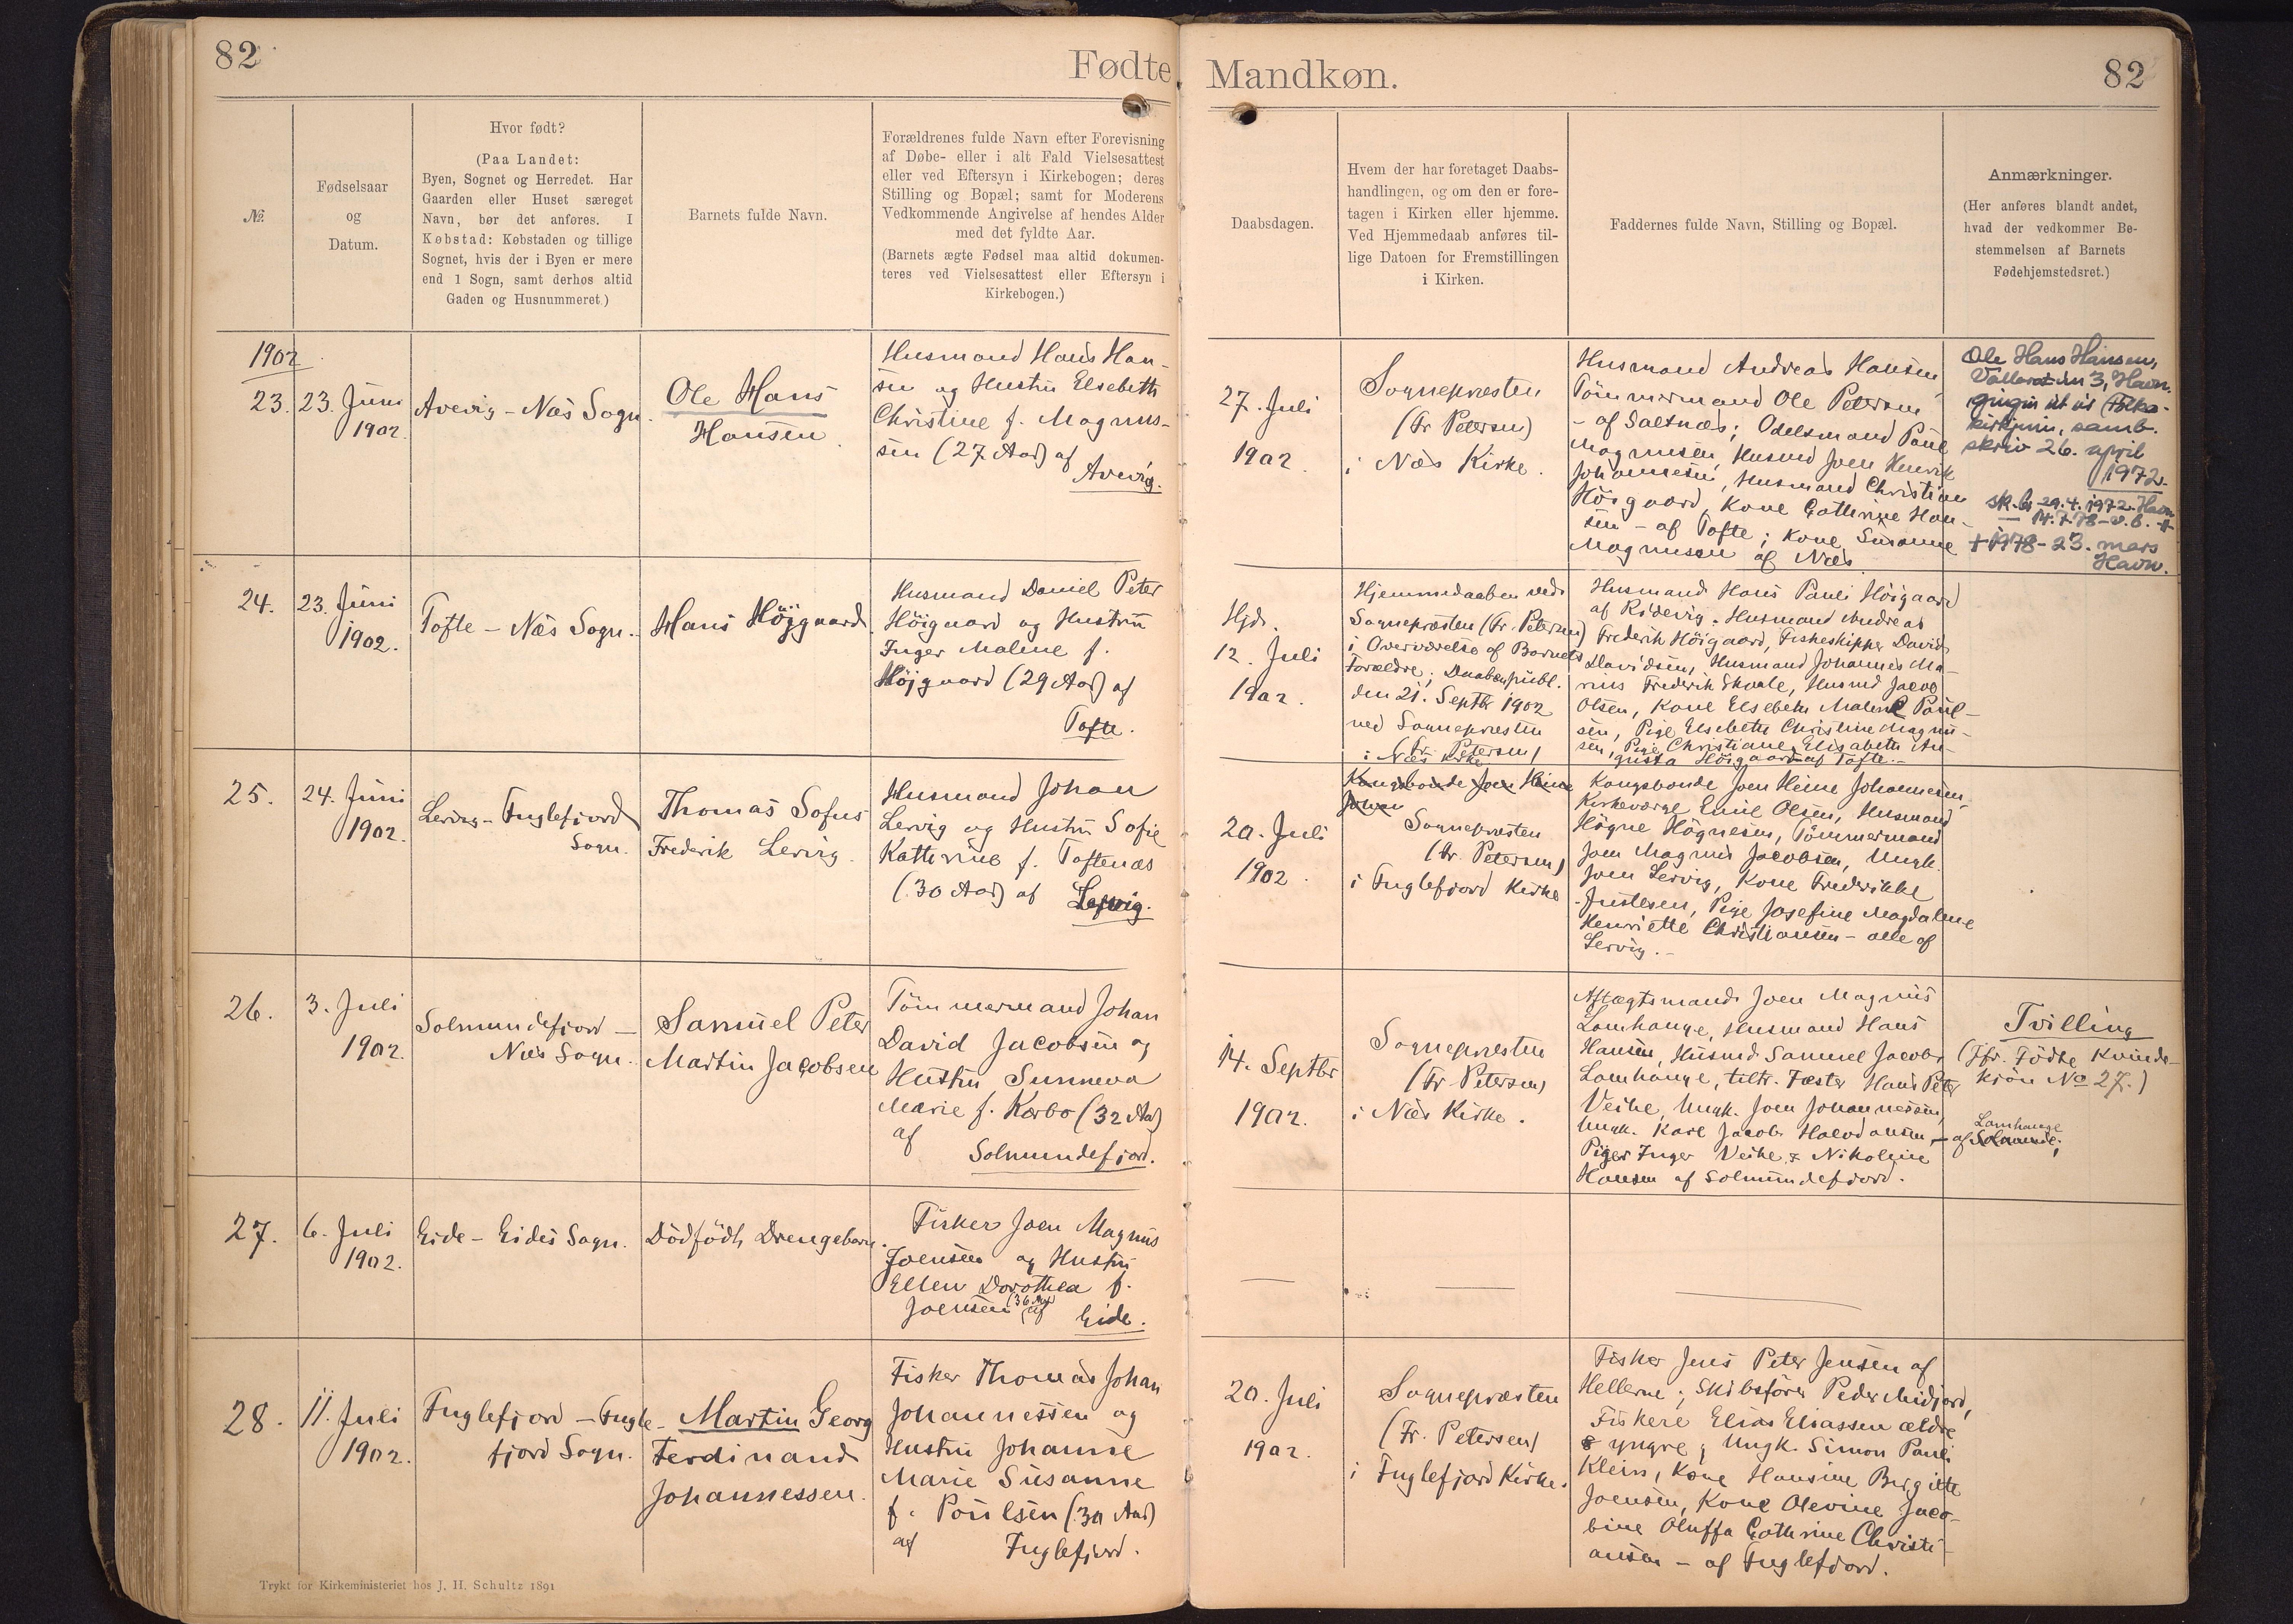 82
Fødte
№
Fødselsaar
og
Datum.
Hvor født?
(Paa Landet:
Byen, Sognet og Herredet. Har
Gaarden eller Huset særeget
Navn, bør det anføres. I
Købstad: Købstaden og tillige
Sognet, hvis der i Byen er mere
end 1 Sogn, samt derhos altid
Gaden og Husnummeret)
Barnets fulde Navn.
Forældrenes fulde Navn efter Forevisning
af Døbe- eller i alt Fald Vielsesattest
eller ved Eftersyn i Kirkebogen; deres
Stilling og Bopæl; samt for Moderens
Vedkommende Angivelse af hendes Alder
med det fyldte Aar.
(Barnets ægte Fødsel maa altid dokumen-
teres ved Vielsesattest eller Eftersyn i
Kirkebogen.)
Mandkøn.
82
Daabsdagen.
Hvem der har foretaget Daabs-
handlingen, og om den er fore-
tagen i Kirken eller hjemme.
Ved Hjemmedaab anføres til-
lige Datoen for Fremstillingen
i Kirken.
Faddernes fulde Navn, Stilling og Bopæl.
Anmærkninger.
(Her anføres blandt andet,
hvad der vedkommer Be-
stemmelsen af Barnets
Fødehjemstedsret.)
1902
23.
23. Juni
1902.
Avevig - Næs Sogn.
Ole Hans
Hansen.
Husmand Hans Han-
sen og Hustru Elsebeth
Christine f. Magnus-
sen (27 Aar) af
Avevig.
27. Juli
1902.
Sognepræsten
(Fr. Petersen)
i Næs Kirke.
Husmand Andreas Hansen,
Tömmermand Ole Petersen
- af Saltnæs; Odelsmand Paul
Magnusen, Husmd Joen Henrik
Johannesen, Husmand Christian
Höigaard, Kone Cathrine Han-
sen - af Tofte; Kone Susanne
Magnussen af Næs.
Ole Hans Hansen,
3, Havn.
gingin út úr Fólka-
kirkjuni, samb.
skriv 26. april
1972.
sk.br. 29.4.1972. Havn
14.7.78 - v.b. +
+ 1978 - 23. mars
Havn.
24.
23. Juni
1902.
Tofte - Næs Sogn.
Hans Höjgaard.
Husmand Daniel Peter
Höigaard og Hustru
Inger Malene f.
Höjgaard (29 Aar) af
Tofte.
Hjd.
12. Juli
1902.
Hjemmedaaben ved
Sognepræsten (Fr. Petersen)
i Overværelse af Barnets
Forældre; Daaben publ.
den 21. Septbr 1902
ved Sognepræsten
(Fr. Petersen)
i Næs Kirke
Husmand Hans Pauli Höigaard
af Ridevig. Husmand Andreas
Frederik Höigaard, Fiskeskipper David
Davidsen, Husmand Johannes Ma-
rius Frederik Skaale, Husmd Jacob
Olsen, Kone Elsebeth Malene Poul-
sen, Pige Elsebeth Christine Magnu-
sen, Pige Christiane Elisabeth Au-
gusta Höigaard af Tofte.-
25.
24. Juni
1902.
Lervig - Fuglefjord
Sogn.
Thomas Sofus
Frederik Lervig.
Husmand Johan
Lervig og Hustru Sofie
Kathrine f. Toftenæs
(30 Aar) af Lervig.
20. Juli
1902.
Kongsbonde Joen Heine
Johan
Sognepræsten
(Fr. Petersen)
i Fuglefjord Kirke
Kongsbonde Joen Heine Johannesen,
Kirkeværge Emil Olsen, Husmand
Högne Högnesen, Tömmermand
Joen Magnus Jacobsen, Ungk.
Joen Lervig, Kone Frederikke
Justesen, Pige Josefine Magdalene
Henriette Christiansen - alle af
Lervig.-
26.
3. Juli
1902.
Solmundefjord -
Næs Sogn.
Samuel Peter
Martin Jacobsen
Tömmermand Johan
David Jacobsen og
Hustru Sunneva
Marie f. Kærbo (32 Aar)
af
Solmundefjord.
14. Septbr
1902.
Sognepræsten
(Fr. Petersen)
i Næs Kirke.
Aftægtsmand Joen Magnus
Lamhauge, Husmand Hans
Hansen, Husmd Samuel Jacob
Lamhauge, tiltr. Fæster Hans Peter
Veihe, Ungk. Joen Johannessen,
Ungk. Karl Jacob Halvdansen, - af Lamhauge;
Piger Inger Veihe & Nikoline
Hansen af Solmundefjord.
Tvilling
(Jfr. Födte Kvinde-
kjön No 27.)
27.
6. Juli
1902.
Eide - Eides Sogn.
Dödfödt Drengebarn.
Fisker Joen Magnus
Joensen og Hustru
Ellen Dorothea f.
Joensen (36 Aar) af
Eide.
28.
11. Juli
1902.
Fuglefjord - Fugle-
fjord Sogn.
Martin Georg
Ferdinand
Johannessen.
Fisker Thomas Johan
Johannessen og
Hustru Johanne
Marie Susanne
f. Poulsen (30 Aar)
af Fuglefjord.
20. Juli
1902.
Sognepræsten
(Fr. Petersen)
i Fuglefjord Kirke.
Fisker Jens Peter Jensen af
Hellerne; Skibsförer Peder Midjord,
Fiskere Elias Eliassen ældre
& yngre; Ungk. Simon Pauli
Klein, Kone Hansine Birgitte
Joensen, Kone Olevine Jaco-
bine Oluffa Cathrine Christi-
ansen - af Fuglefjord.
Trykt for Kirkeministeriet hos J. H. Schultz 1891